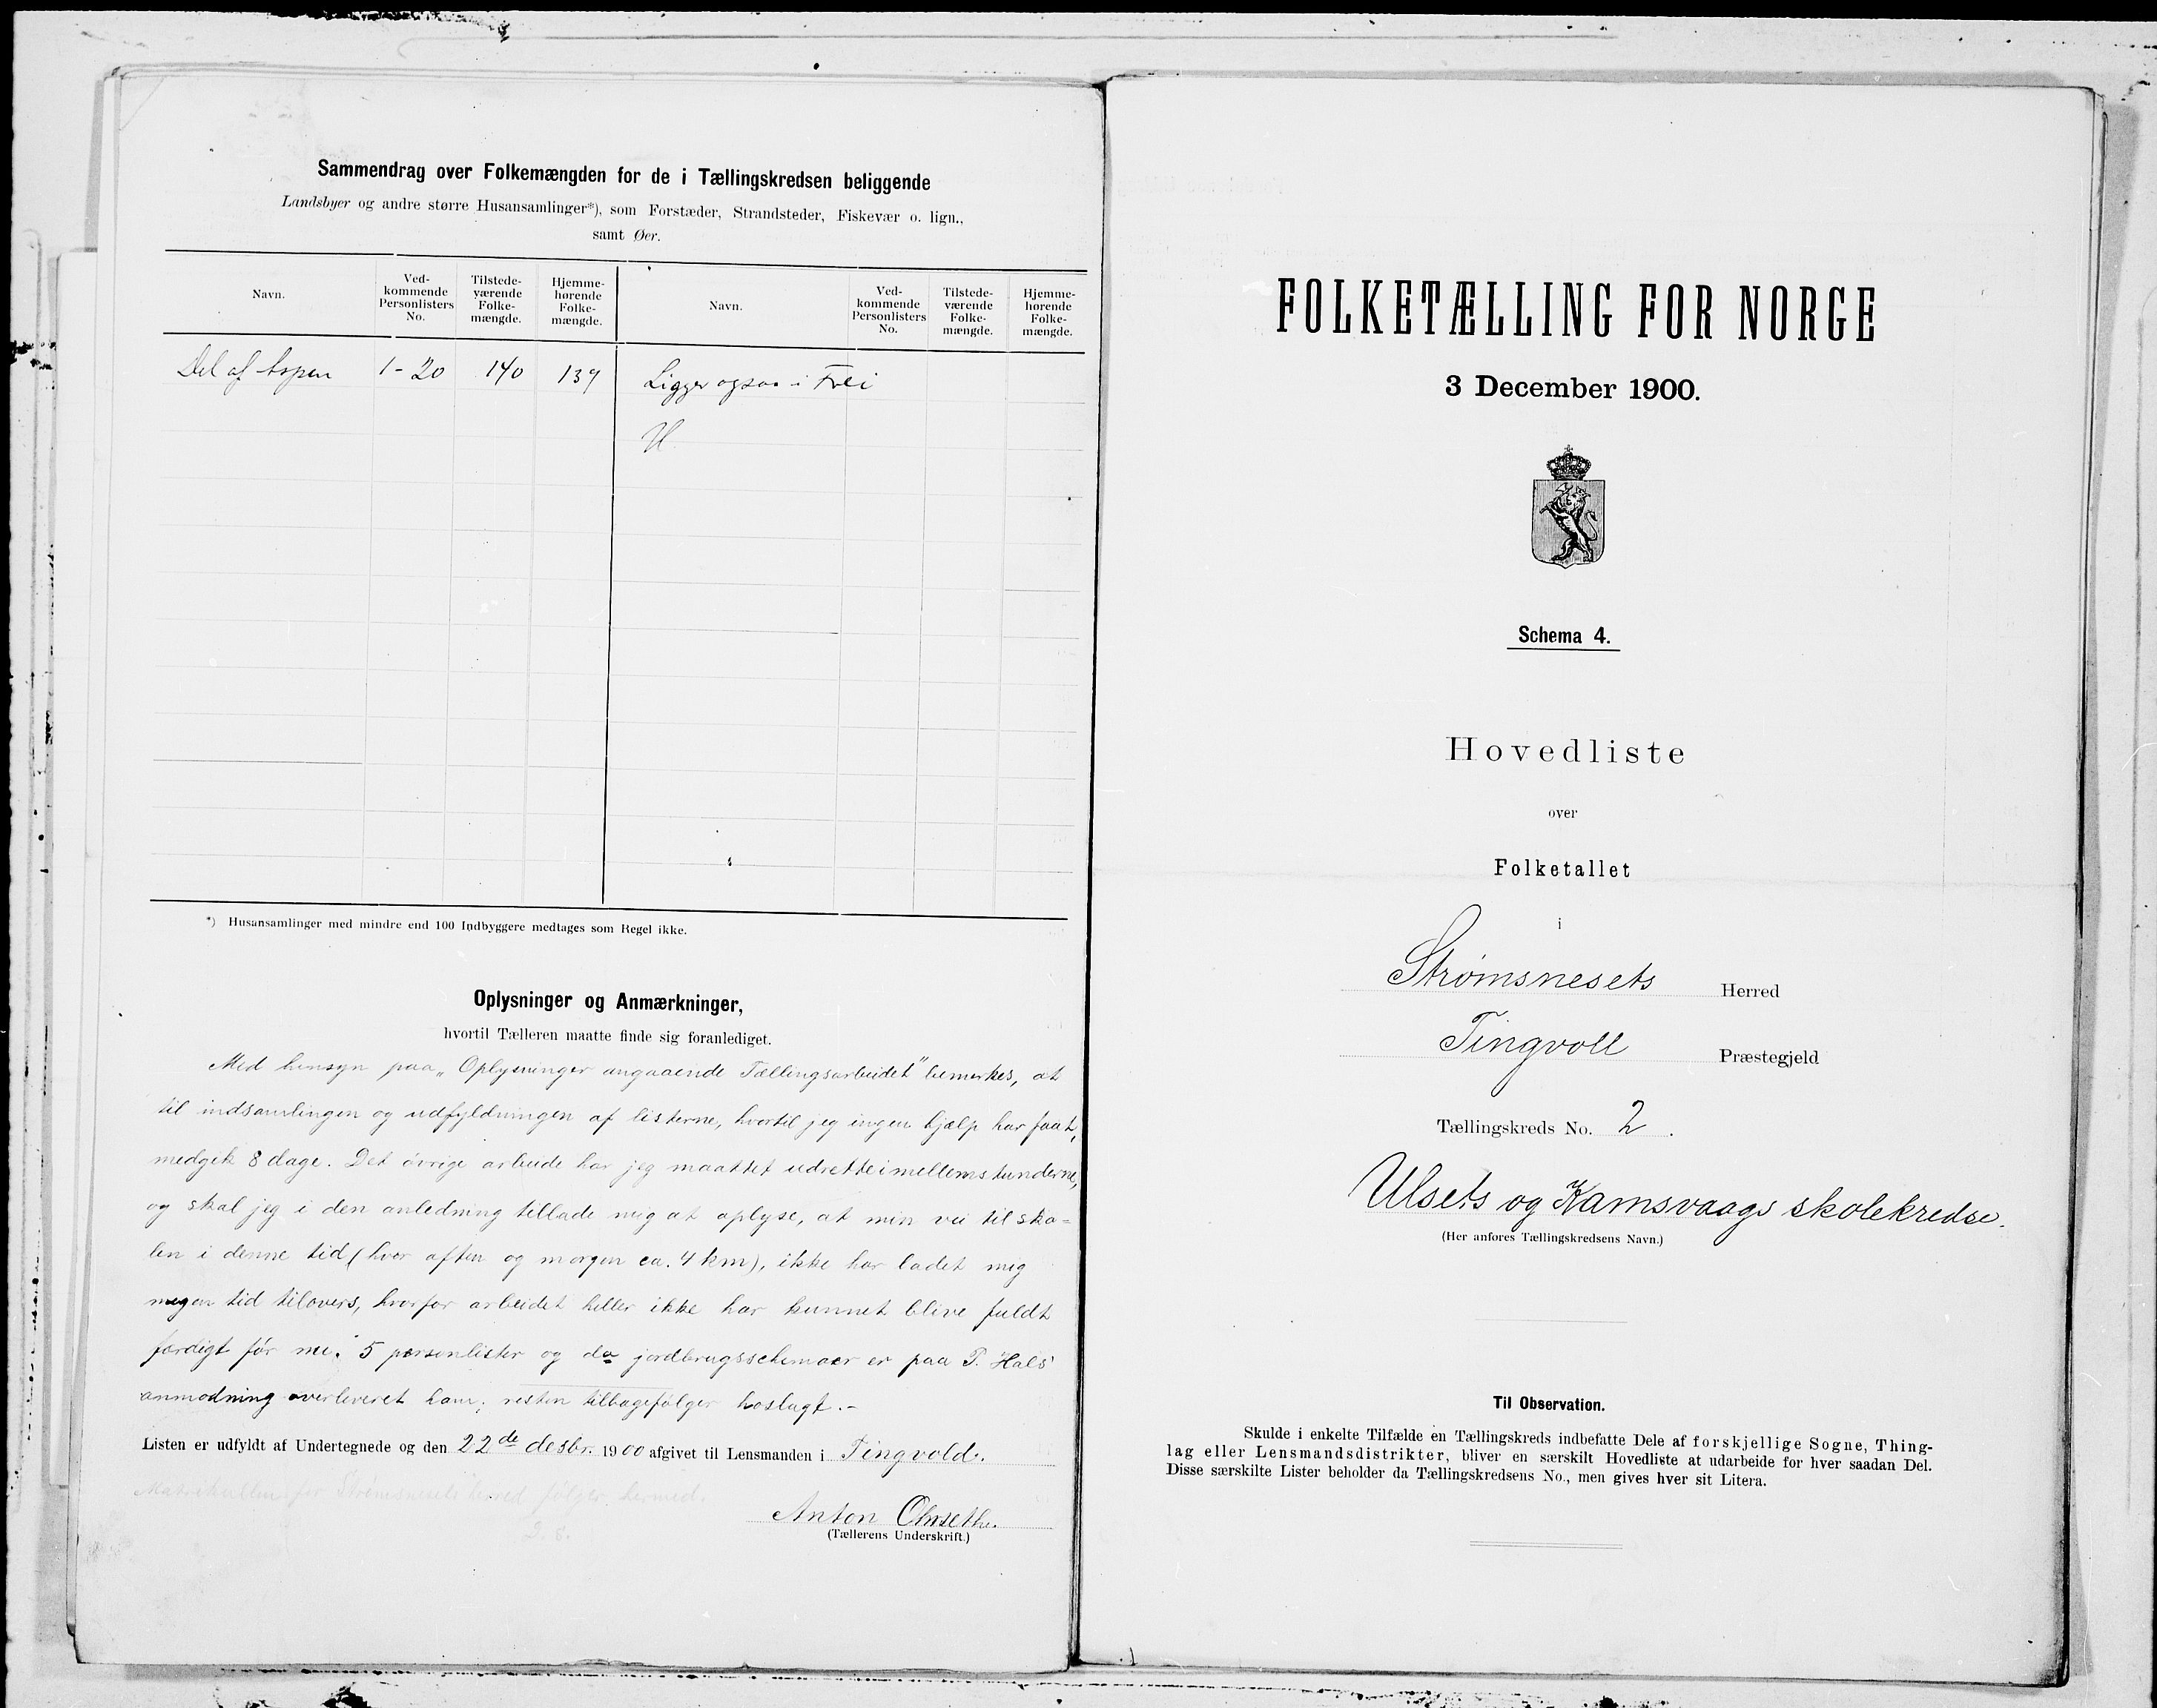 Sammendrag over Folkemængden for de i Tællingskredsen beliggende
Landsbyer og andre større Husansamlinger*), som Forstæder, Strandsteder, Fiskevær o. lign.,
samt Øer.
Navn. Ved-kommende Personlisters No. Tilstede-værende Folke-mængde. Hjemme-hørende Folke-mængde. Navn. Ved-kommende Personlisters No. Tilstede-værende Folke-mængde. Hjemme-hørende Folke-mængde.
Del af Aspen 1-20 140 139 Ligger ogsaa i Frei
*) Husansamlinger med mindre end 100 Indbyggere medtages som Regel ikke.
Oplysninger og Anmærkninger,
hvortil Tælleren maatte finde sig foranlediget.
Med hensyn paa „Oplysninger angaaende Tællingsarbeidet" bemerkes, at
til indsamlingen og udfyldningen af listerne, hvortil jeg ingen hjælp har faat,
medgik 8 dage. Det øvrige arbeide har jeg maattet udrette i mellemstunderne,
og skal jeg i den anledning tillade mig at oplyse, at min vei til sko-
len i denne tid (hver aften og morgen ca. 4 km), ikke har ladet mig
megen tid tilovers, hvorfor arbeidet heller ikke har kunnet blive fuldt
færdigt før nu. 5 personlister og do jordbrugsschemaer er paa P. Hals'
anmodning overleveret ham; resten tilbagefølger hoslagt.-
Listen er udfyldt af Undertegnede og den 22de desbr. 1900 afgivet til Lensmanden i Tingvold.
Matrikullen for Strømsnesets herred følger hermed.
Anton
(Tællerens Underskrift.)
FOLKETÆLLING FOR NORGE
3 December 1900.
Schema 4.
Hovedliste
over
Folketallet
i
Strømsnesets Herred
Tingvoll Præstegjeld
Tællingskreds No. 2.
Ulsets og Kamsvaags skolekredse.
(Her anføres Tællingskredsens Navn.)
Til Observation.
Skulde i enkelte Tilfælde en Tællingskreds indbefatte Dele af forskjellige Sogne, Thing-
lag eller Lensmandsdistrikter, bliver en særskilt Hovedliste at udarbeide for hver saadan Del.
Disse særskilte Lister beholder da Tællingskredsens No., men gives hver sit Litera.